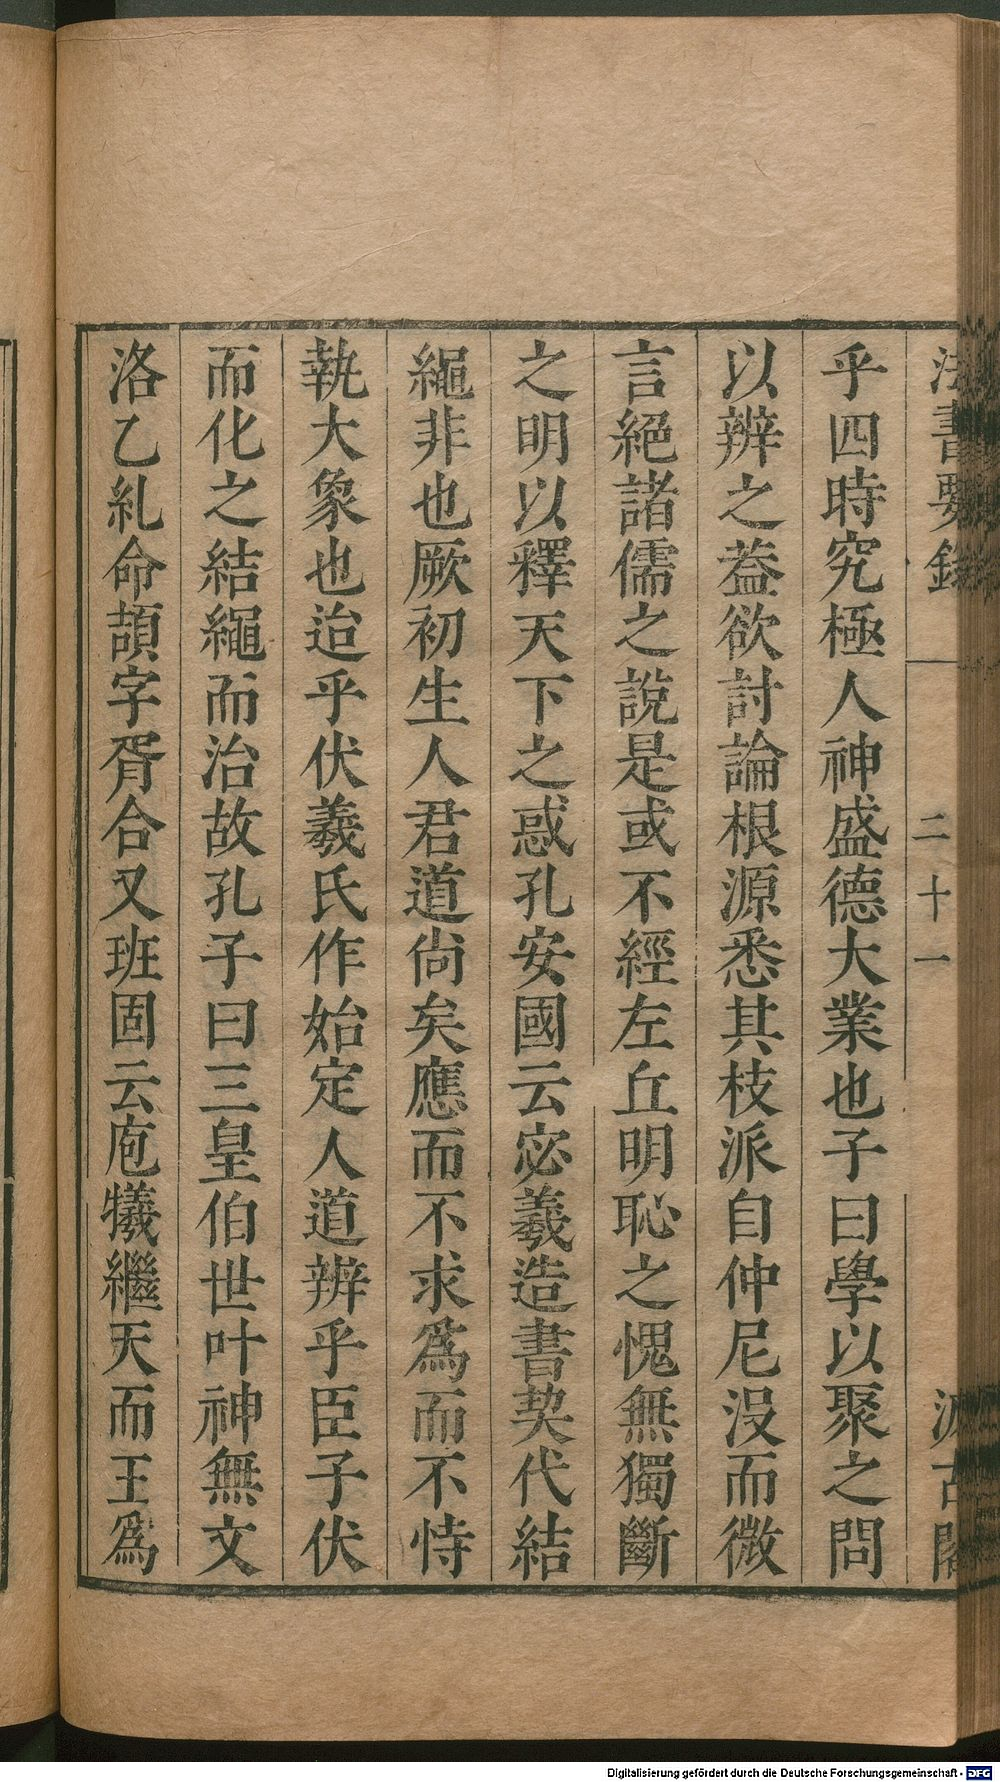 法書要錄 二十一 汲古閣
乎四時究極人神盛德大業也子曰學以聚之問
以辨之葢欲討論根源悉其枝派自仲尼没而微
言絕諸儒之說是或不經左丘明恥之愧無獨斷
之明以釋天下之惑孔安國云宓羲造書契代結
繩非也厥初生人君道尙矣應而不求爲而不恃
執大象也迨乎伏羲氏作始定人道辨乎臣子伏
而化之結繩而治故孔子曰三皇伯世叶神無文
洛乙紮命頡字胥合又班固云庖犧繼天而王爲
Digitalisierung gefördert durch die Deutsche Forschungsgemeinschaft - DFG